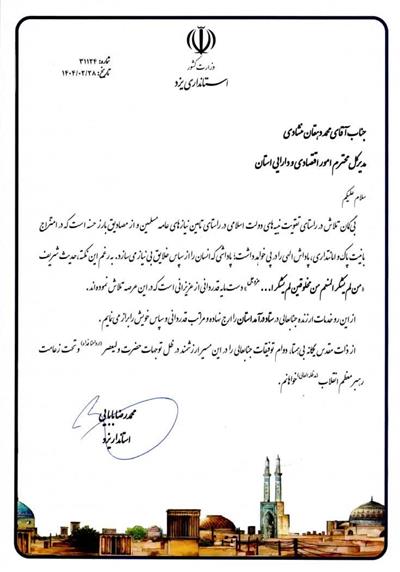 وزارت کشور
استانداری یزد
شماره: ۳۱۱۲۴
تاریخ: ۱۴۰۴/۰۲/۲۸
جناب آقای محمد دهقان منشادی
مدیرکل محترم امور اقتصادی و دارایی استان
سلام علیکم
بی‌گمان تلاش در راستای تقویت بنیه‌های دولت اسلامی در راستای تامین نیازهای عامه مسلمین و از مصادیق بارز حسنه است که در امتزاج
با نیت پاک و امانتداری، پاداش الهی را در پی خواهد داشت؛ پاداشی که انسان را از سپاس خلایق بی نیاز می سازد. به رغم این نکته، حدیث شریف
«من لم یشکر المنعم من المخلوقین لم یشکر ا... عزوجل» دست مایه قدردانی از عزیزانی است که در این عرصه تلاش نموده‌اند.
از این رو خدمات ارزنده جنابعالی در ستاد درآمد استان را ارج نهاده و مراتب قدردانی و سپاس خویش را ابراز می نمایم.
از ذات مقدس یگانه بی همتا، دوام توفیقات جنابعالی را در این مسیر ارزشمند در ظل توجهات حضرت ولیعصر و تحت زعامت
رهبر معظم انقلاب خواهانم.
محمدرضا بابایی
استاندار یزد